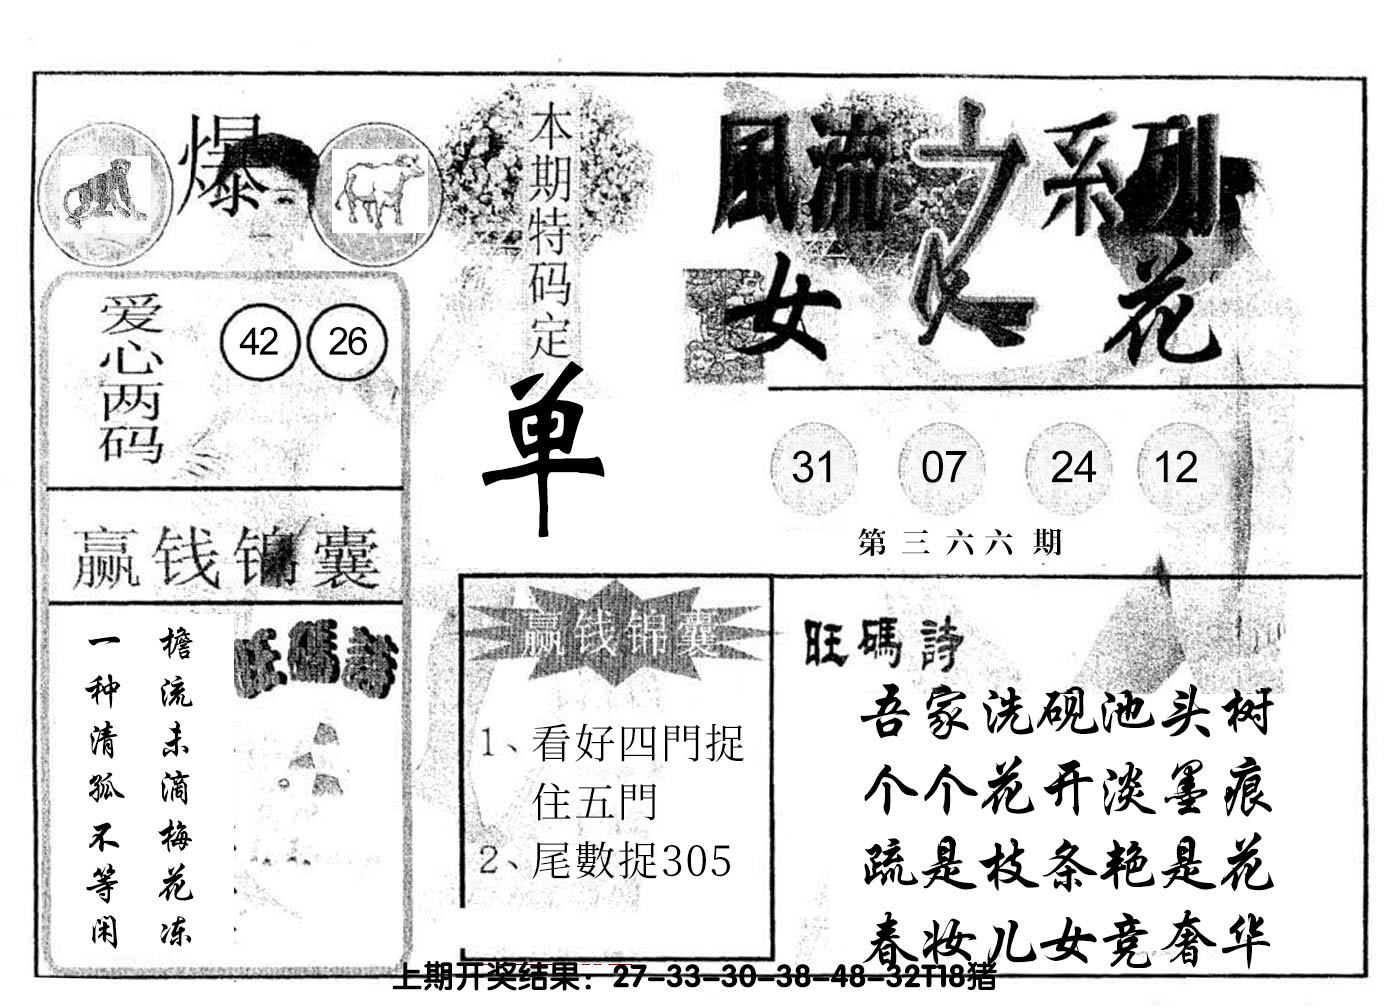 爆
本期特码定
单
風流之系列
女人花
爱心两码
42 26
31 07 24 12
第三六六期
赢钱锦囊
檐流未滴梅花冻
一种清孤不等闲
旺碼詩
赢钱锦囊
1、看好四門捉
住五門
2、尾數捉305
旺碼詩
吾家洗砚池头树
个个花开淡墨痕
疏是枝条艳是花
春妆儿女竞奢华
上期开奖结果：27-33-30-38-48-32T18猪